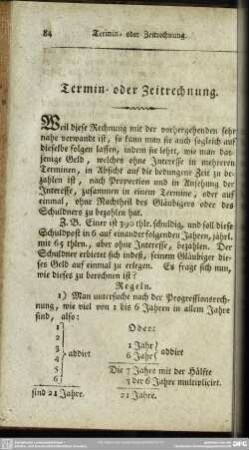 84 Termin- oder Zeitrechnung.
Termin- oder Zeitrechnung.
Weil diese Rechnung mit der vorhergehenden sehr
nahe verwandt ist, so kann man sie auch sogleich auf
dieselbe folgen lassen, indem sie lehrt, wie man das-
jenige Geld, welches ohne Interesse in mehreren
Terminen, in Absicht auf die bedungene Zeit zu be-
zahlen ist, nach Proportion und in Ansehung der
Interesse, zusammen in einem Termine, oder auf
einmal, ohne Nachtheil des Gläubigers oder des
Schuldners zu bezahlen hat.
Z. B. Einer ist 390 thlr. schuldig, und soll diese
Schuldpost in 6 auf einander folgenden Jahren, jährl.
mit 65 thlrn., aber ohne Interesse, bezahlen. Der
Schuldner erbietet sich indeß, seinem Gläubiger die-
ses Geld auf einmal zu erlegen. Es fragt sich nun,
wie dieses zu berechnen ist?
Regeln.
1) Man untersuche nach der Progressionsrech-
nung, wie viel von 1 bis 6 Jahren in allem Jahre
sind, also:
Oder:
1
2
3
4
5
6
addirt
1 Jahr
6 Jahre
addirt
Die 7 Jahre mit der Hälfte
3 der 6 Jahre multiplicirt.
sind 21 Jahre.
21 Jahre.